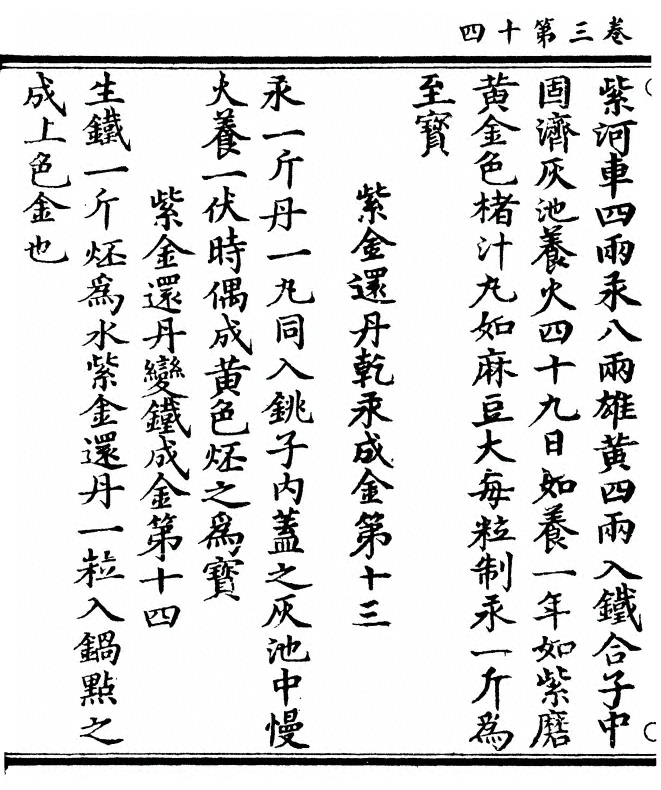 卷三第十四
紫河車四兩汞八兩雄黃四兩入鐵合子中
固濟灰池養火四十九日如養一年如紫磨
黃金色楮汁丸如麻豆大每粒制汞一斤為
至寶
紫金還丹乾汞成金第十三
汞一斤丹一丸同入銚子內蓋之灰池中慢
火養一伏時偶成黃色炢之為寶
紫金還丹變鐵成金第十四
生鐵一斤炢為水紫金還丹一粒入鍋點之
成上色金也